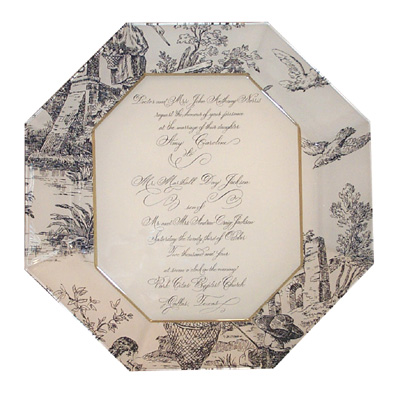 Doctor and Mrs. John Anthony
request the honour of your presence
at the marriage of their daughter
Amy Caroline
to
Mr. Marshall Day Jackson
son of
Mr. and Mrs. Andrew Craig Jackson
Saturday the twenty third of October
Two thousand and four
at seven o'clock in the evening
Park Cities Baptist Church
Dallas, Texas